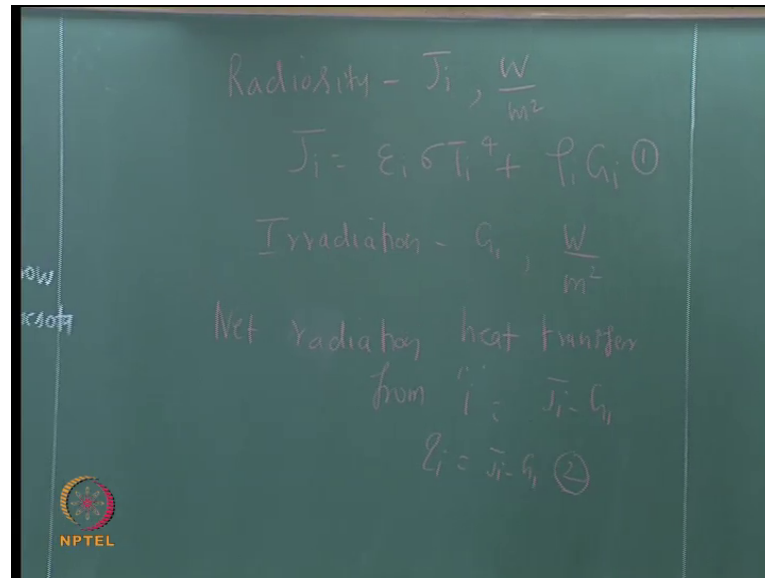 Radiosity - Ji, W/m²
Ji = εi σTi⁴ + ρi Gi ①
Irradiation - Gi, W/m²
Net radiation heat transfer
from 'i' = Ji - Gi
qi = Ji - Gi ②
NPTEL